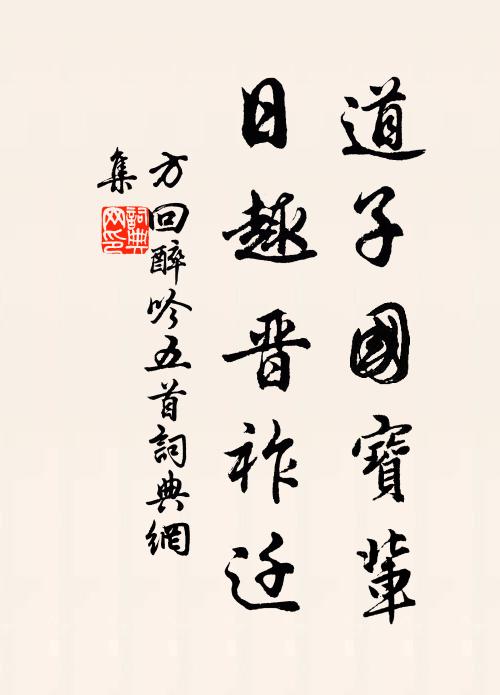 道子國寶輩
日趣晋祚迁
方回醉吟五首詞典網
集
詞典网印